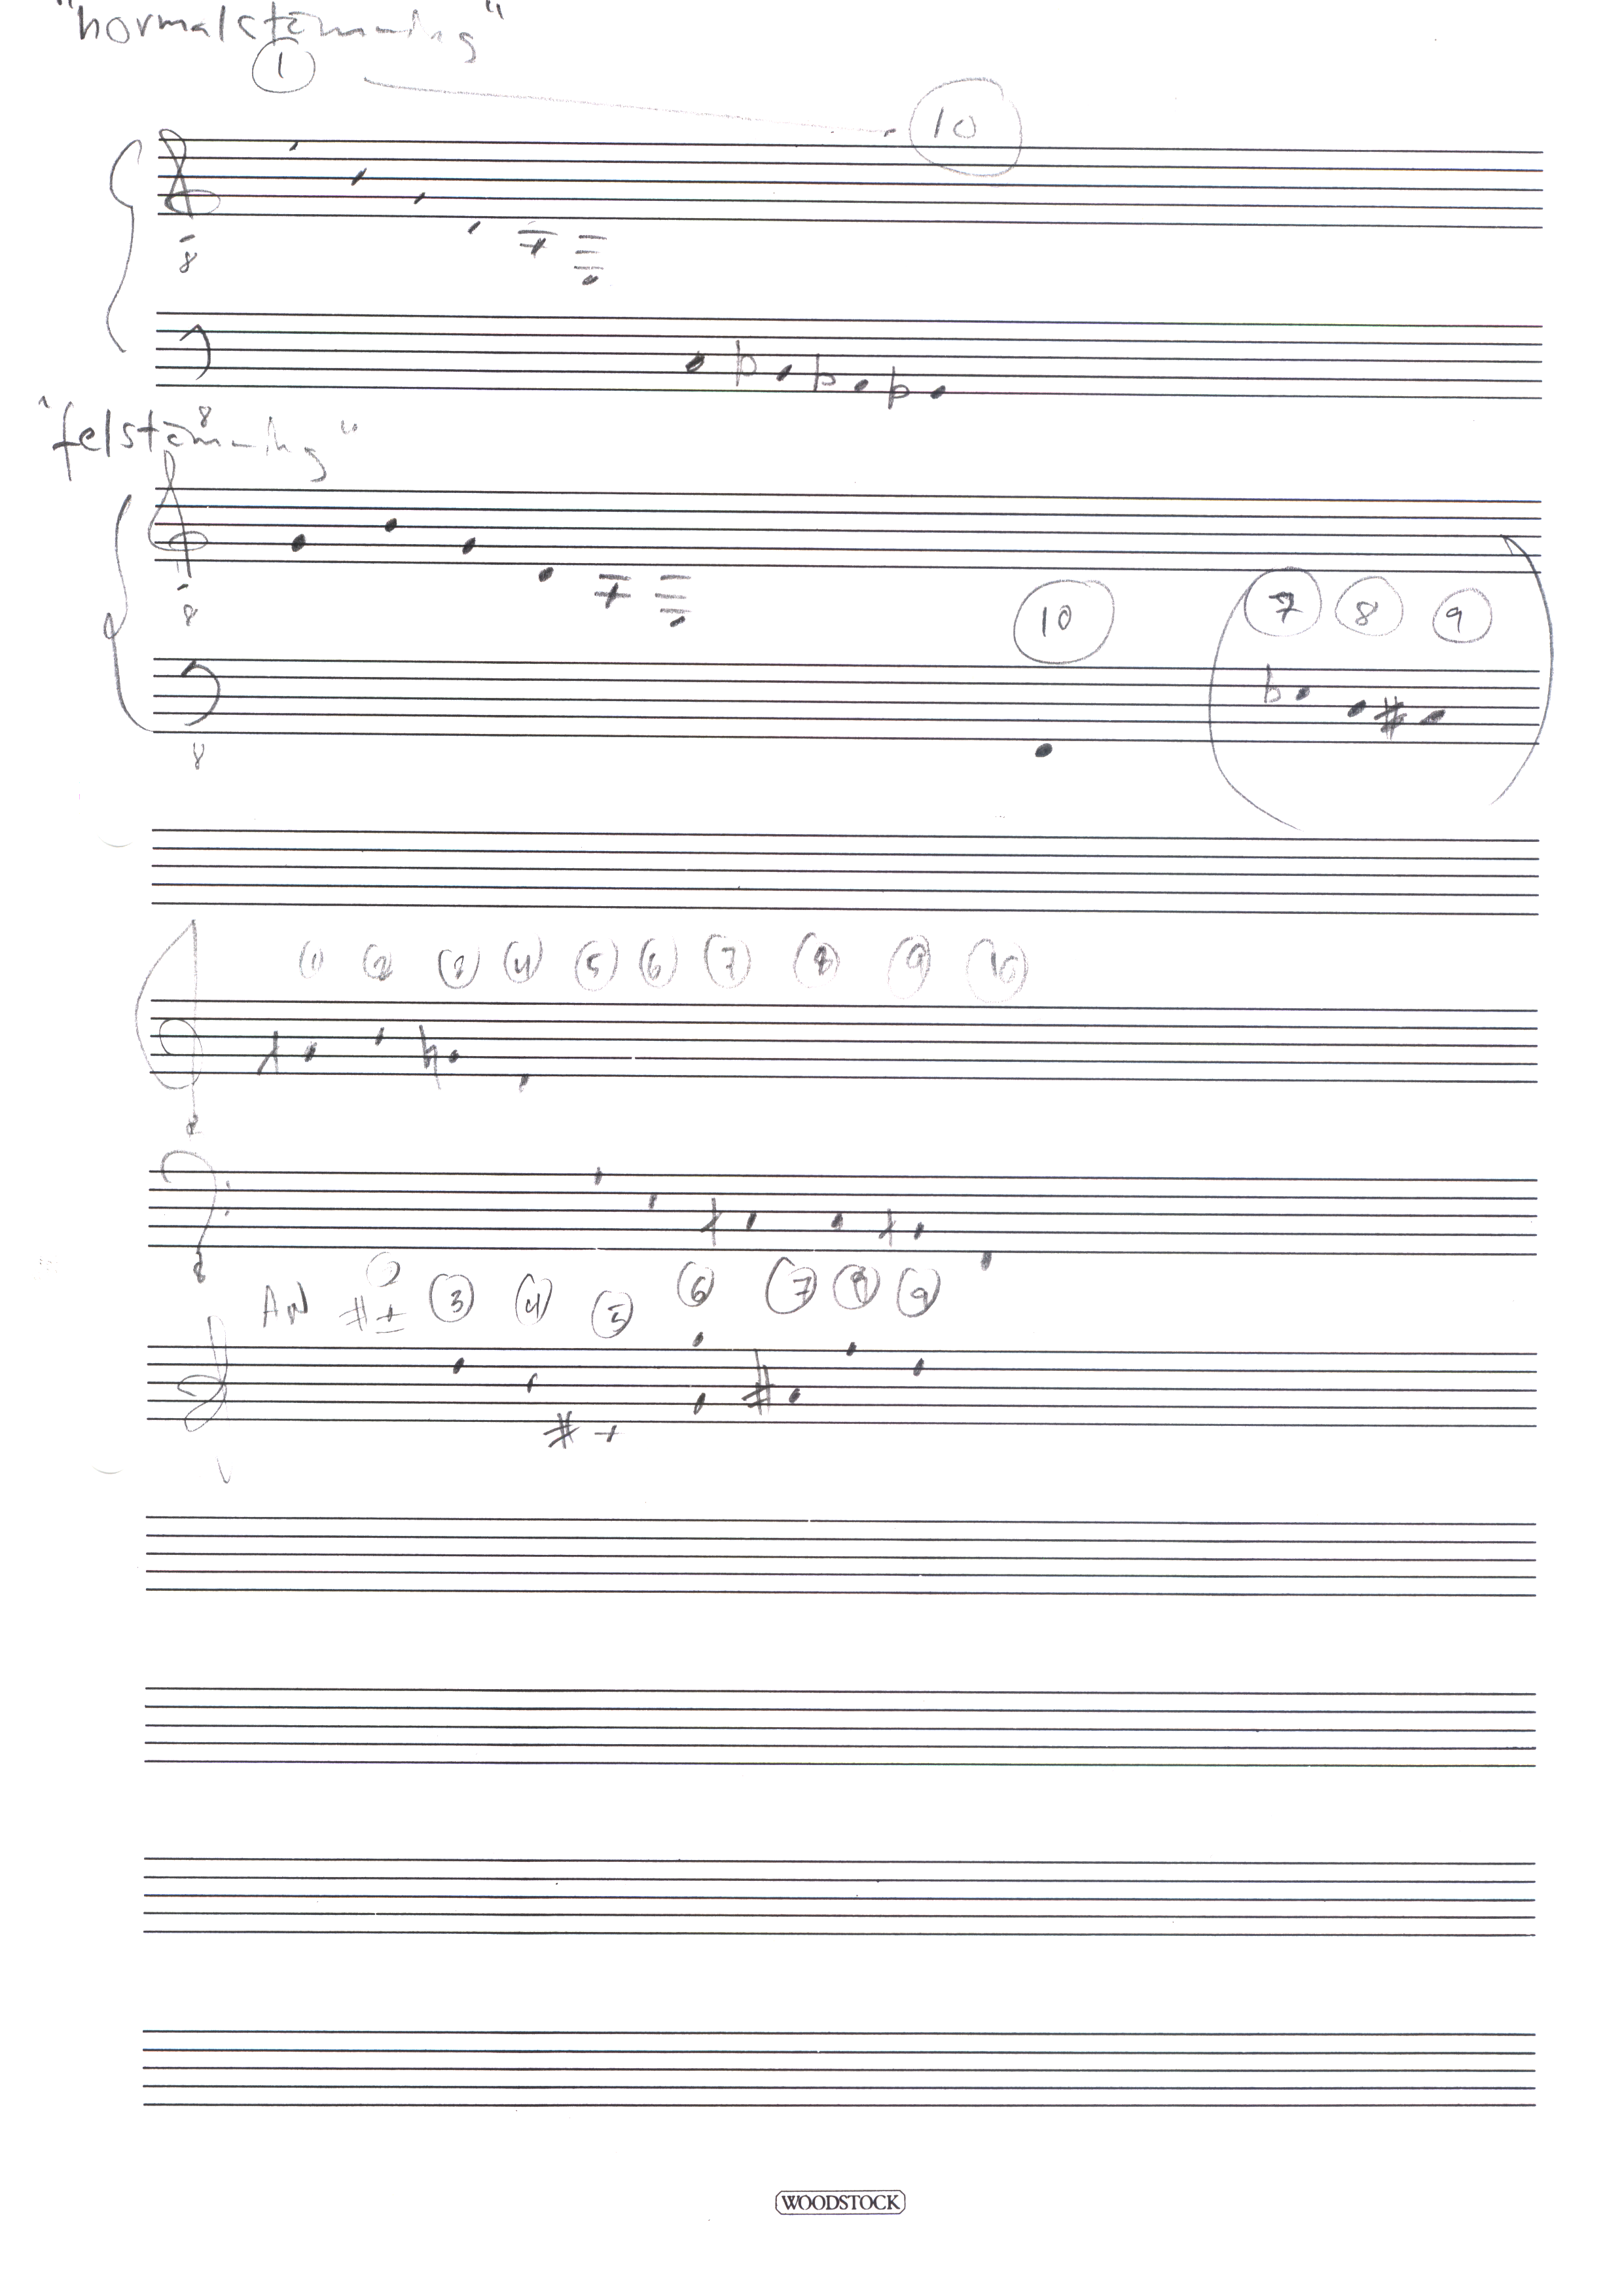 "normalstämning"
1
10
8
8
"felstämning"
8
10
7 8 9
8
1 2 3 4 5 6 7 8 9 10
8
8
3 4 5 6 7 8 9
WOODSTOCK